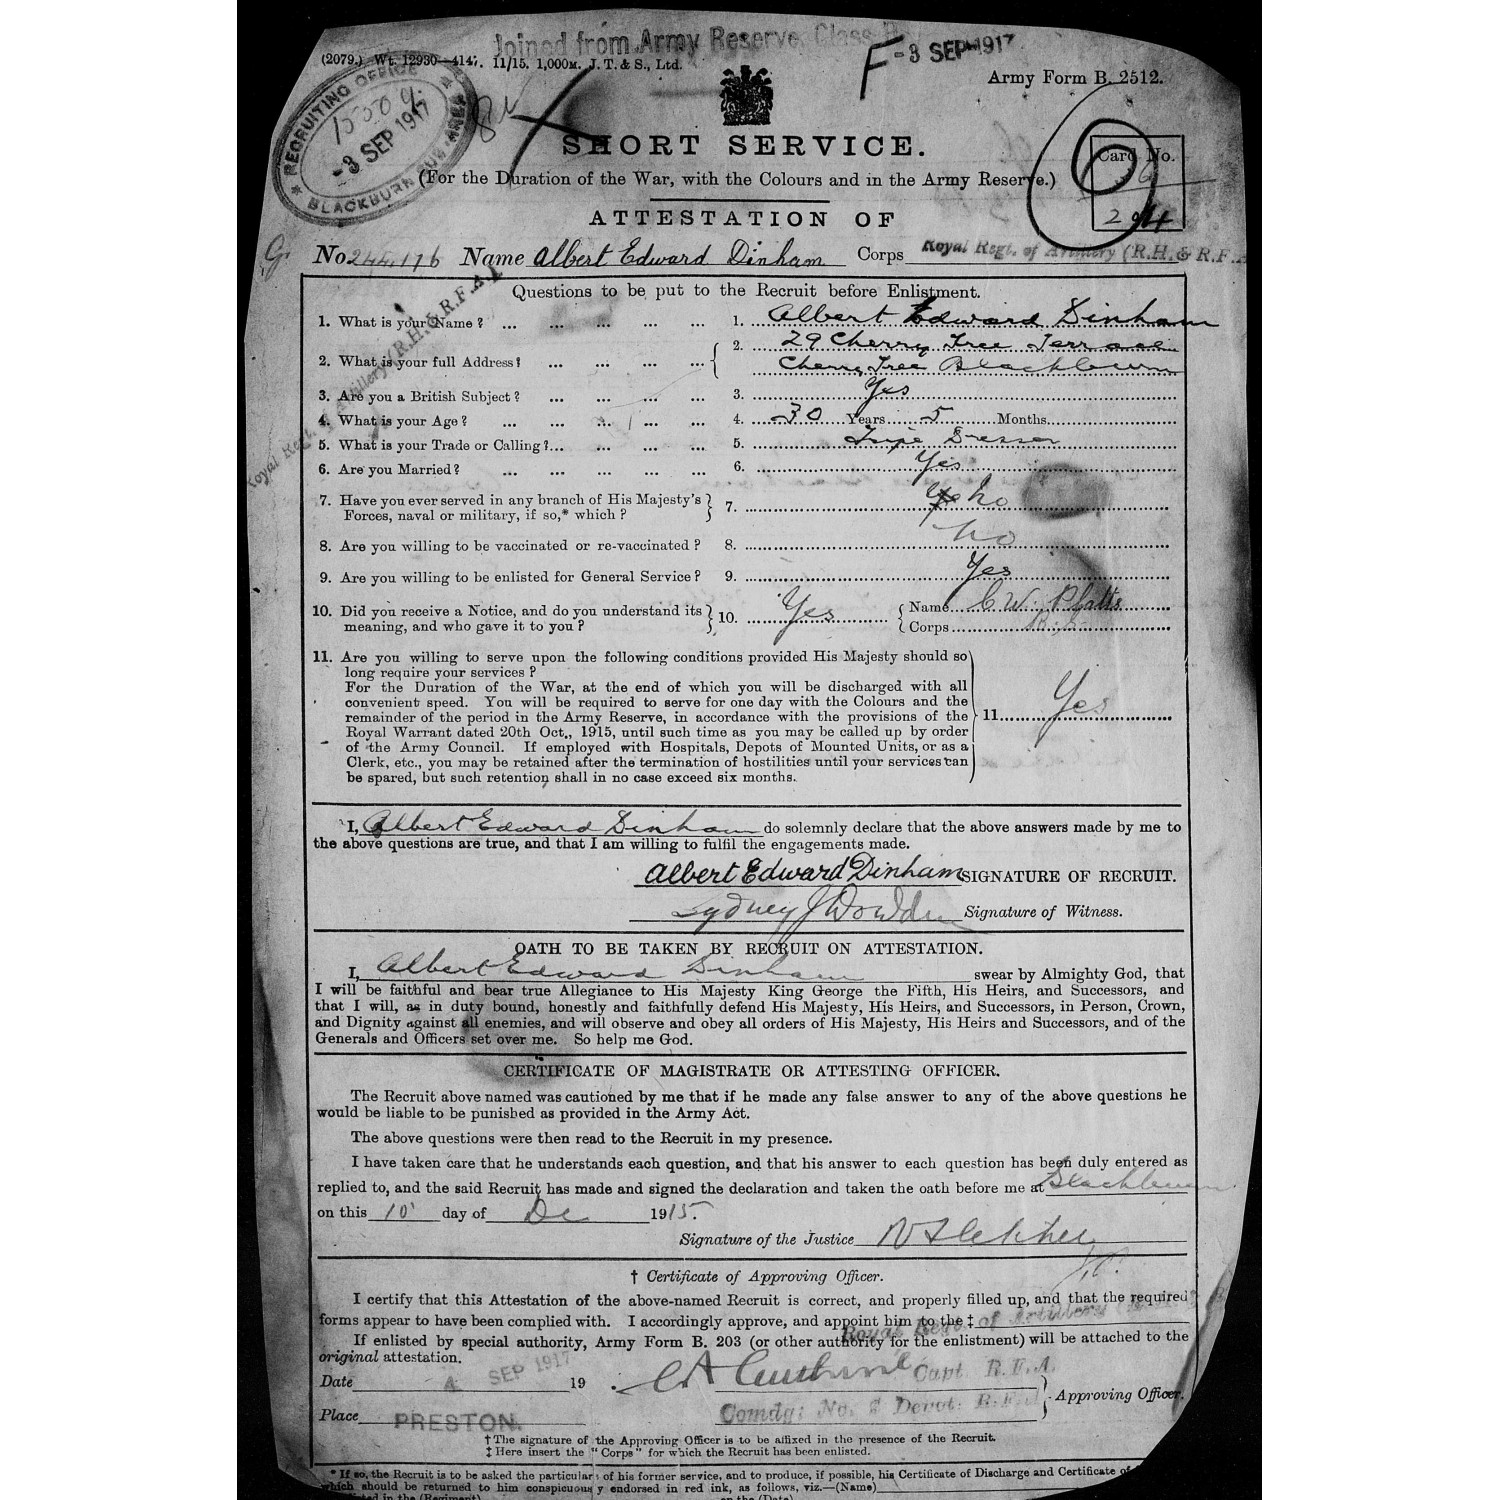 Joined from Army Reserve, Class
F -3 SEP 1917
(2079.) Wt. 12930—4147. 11/15. 1,000M. J. T. & S., Ltd.
Army Form B. 2512.
RECRUITING OFFICE
-3 SEP 1917
BLACKBURN SUB-AREA
SHORT SERVICE.
Card No.
(For the Duration of the War, with the Colours and in the Army Reserve.)
ATTESTATION OF
No 244176 Name Albert Edward Dinham Corps Royal Regt. of Artillery (R.H. & R.F.A
Questions to be put to the Recruit before Enlistment.
1. What is your Name? ... ... ... ... ... 1. Albert Edward Dinham
2. What is your full Address? ... ... ... ... 2. 29 Cherry Tree Terrace
Cherry Tree Blackburn
3. Are you a British Subject? ... ... ... ... 3. Yes
4. What is your Age? ... ... ... ... ... 4. 30 Years 5 Months
5. What is your Trade or Calling?... ... ... ... 5. Tripe Dresser
6. Are you Married? ... ... ... ... ... 6. Yes
7. Have you ever served in any branch of His Majesty's
Forces, naval or military, if so,* which? 7. Yes No
8. Are you willing to be vaccinated or re-vaccinated? 8. No
9. Are you willing to be enlisted for General Service? 9. Yes
10. Did you receive a Notice, and do you understand its
meaning, and who gave it to you? 10. Yes Name C. W. Platts
Corps
11. Are you willing to serve upon the following conditions provided His Majesty should so
long require your services?
For the Duration of the War, at the end of which you will be discharged with all
convenient speed. You will be required to serve for one day with the Colours and the
remainder of the period in the Army Reserve, in accordance with the provisions of the
Royal Warrant dated 20th Oct., 1915, until such time as you may be called up by order
of the Army Council. If employed with Hospitals, Depots of Mounted Units, or as a
Clerk, etc., you may be retained after the termination of hostilities until your services can
be spared, but such retention shall in no case exceed six months.
11. Yes
I, Albert Edward Dinham do solemnly declare that the above answers made by me to
the above questions are true, and that I am willing to fulfil the engagements made.
Albert Edward Dinham SIGNATURE OF RECRUIT.
Sydney J Dowden Signature of Witness.
OATH TO BE TAKEN BY RECRUIT ON ATTESTATION.
I, Albert Edward Dinham swear by Almighty God, that
I will be faithful and bear true Allegiance to His Majesty King George the Fifth, His Heirs, and Successors, and
that I will, as in duty bound, honestly and faithfully defend His Majesty, His Heirs, and Successors, in Person, Crown,
and Dignity against all enemies, and will observe and obey all orders of His Majesty, His Heirs and Successors, and of the
Generals and Officers set over me. So help me God.
CERTIFICATE OF MAGISTRATE OR ATTESTING OFFICER.
The Recruit above named was cautioned by me that if he made any false answer to any of the above questions he
would be liable to be punished as provided in the Army Act.
The above questions were then read to the Recruit in my presence.
I have taken care that he understands each question, and that his answer to each question has been duly entered as
replied to, and the said Recruit has made and signed the declaration and taken the oath before me at Blackburn
on this 10 day of Dec 1915.
Signature of the Justice
J.P.
† Certificate of Approving Officer.
I certify that this Attestation of the above-named Recruit is correct, and properly filled up, and that the required
forms appear to have been complied with. I accordingly approve, and appoint him to the ‡
Royal Regt. of Artillery
If enlisted by special authority, Army Form B. 203 (or other authority for the enlistment) will be attached to the
original attestation.
Date 4 SEP 1917 19 Capt. R.F.A.
Approving Officer.
Place PRESTON. Comdg: No. 2 Depot: R.F.A.
† The signature of the Approving Officer is to be affixed in the presence of the Recruit.
‡ Here insert the "Corps" for which the Recruit has been enlisted.
* If so, the Recruit is to be asked the particulars of his former service, and to produce, if possible, his Certificate of Discharge and Certificate of
which should be returned to him conspicuously endorsed in red ink, as follows, viz.—(Name)